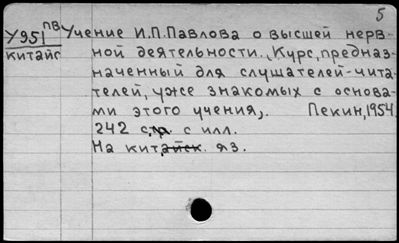 5
У951 пв Учение И.П.Павлова о высшей нерв-
китайс ной деятельности. Курс, предназ-
наченный для слушателей-чита-
телей, уже знакомых с основа-
ми этого учения,. Пекин, 1954.
242 с. с илл.
На китайск. яз.